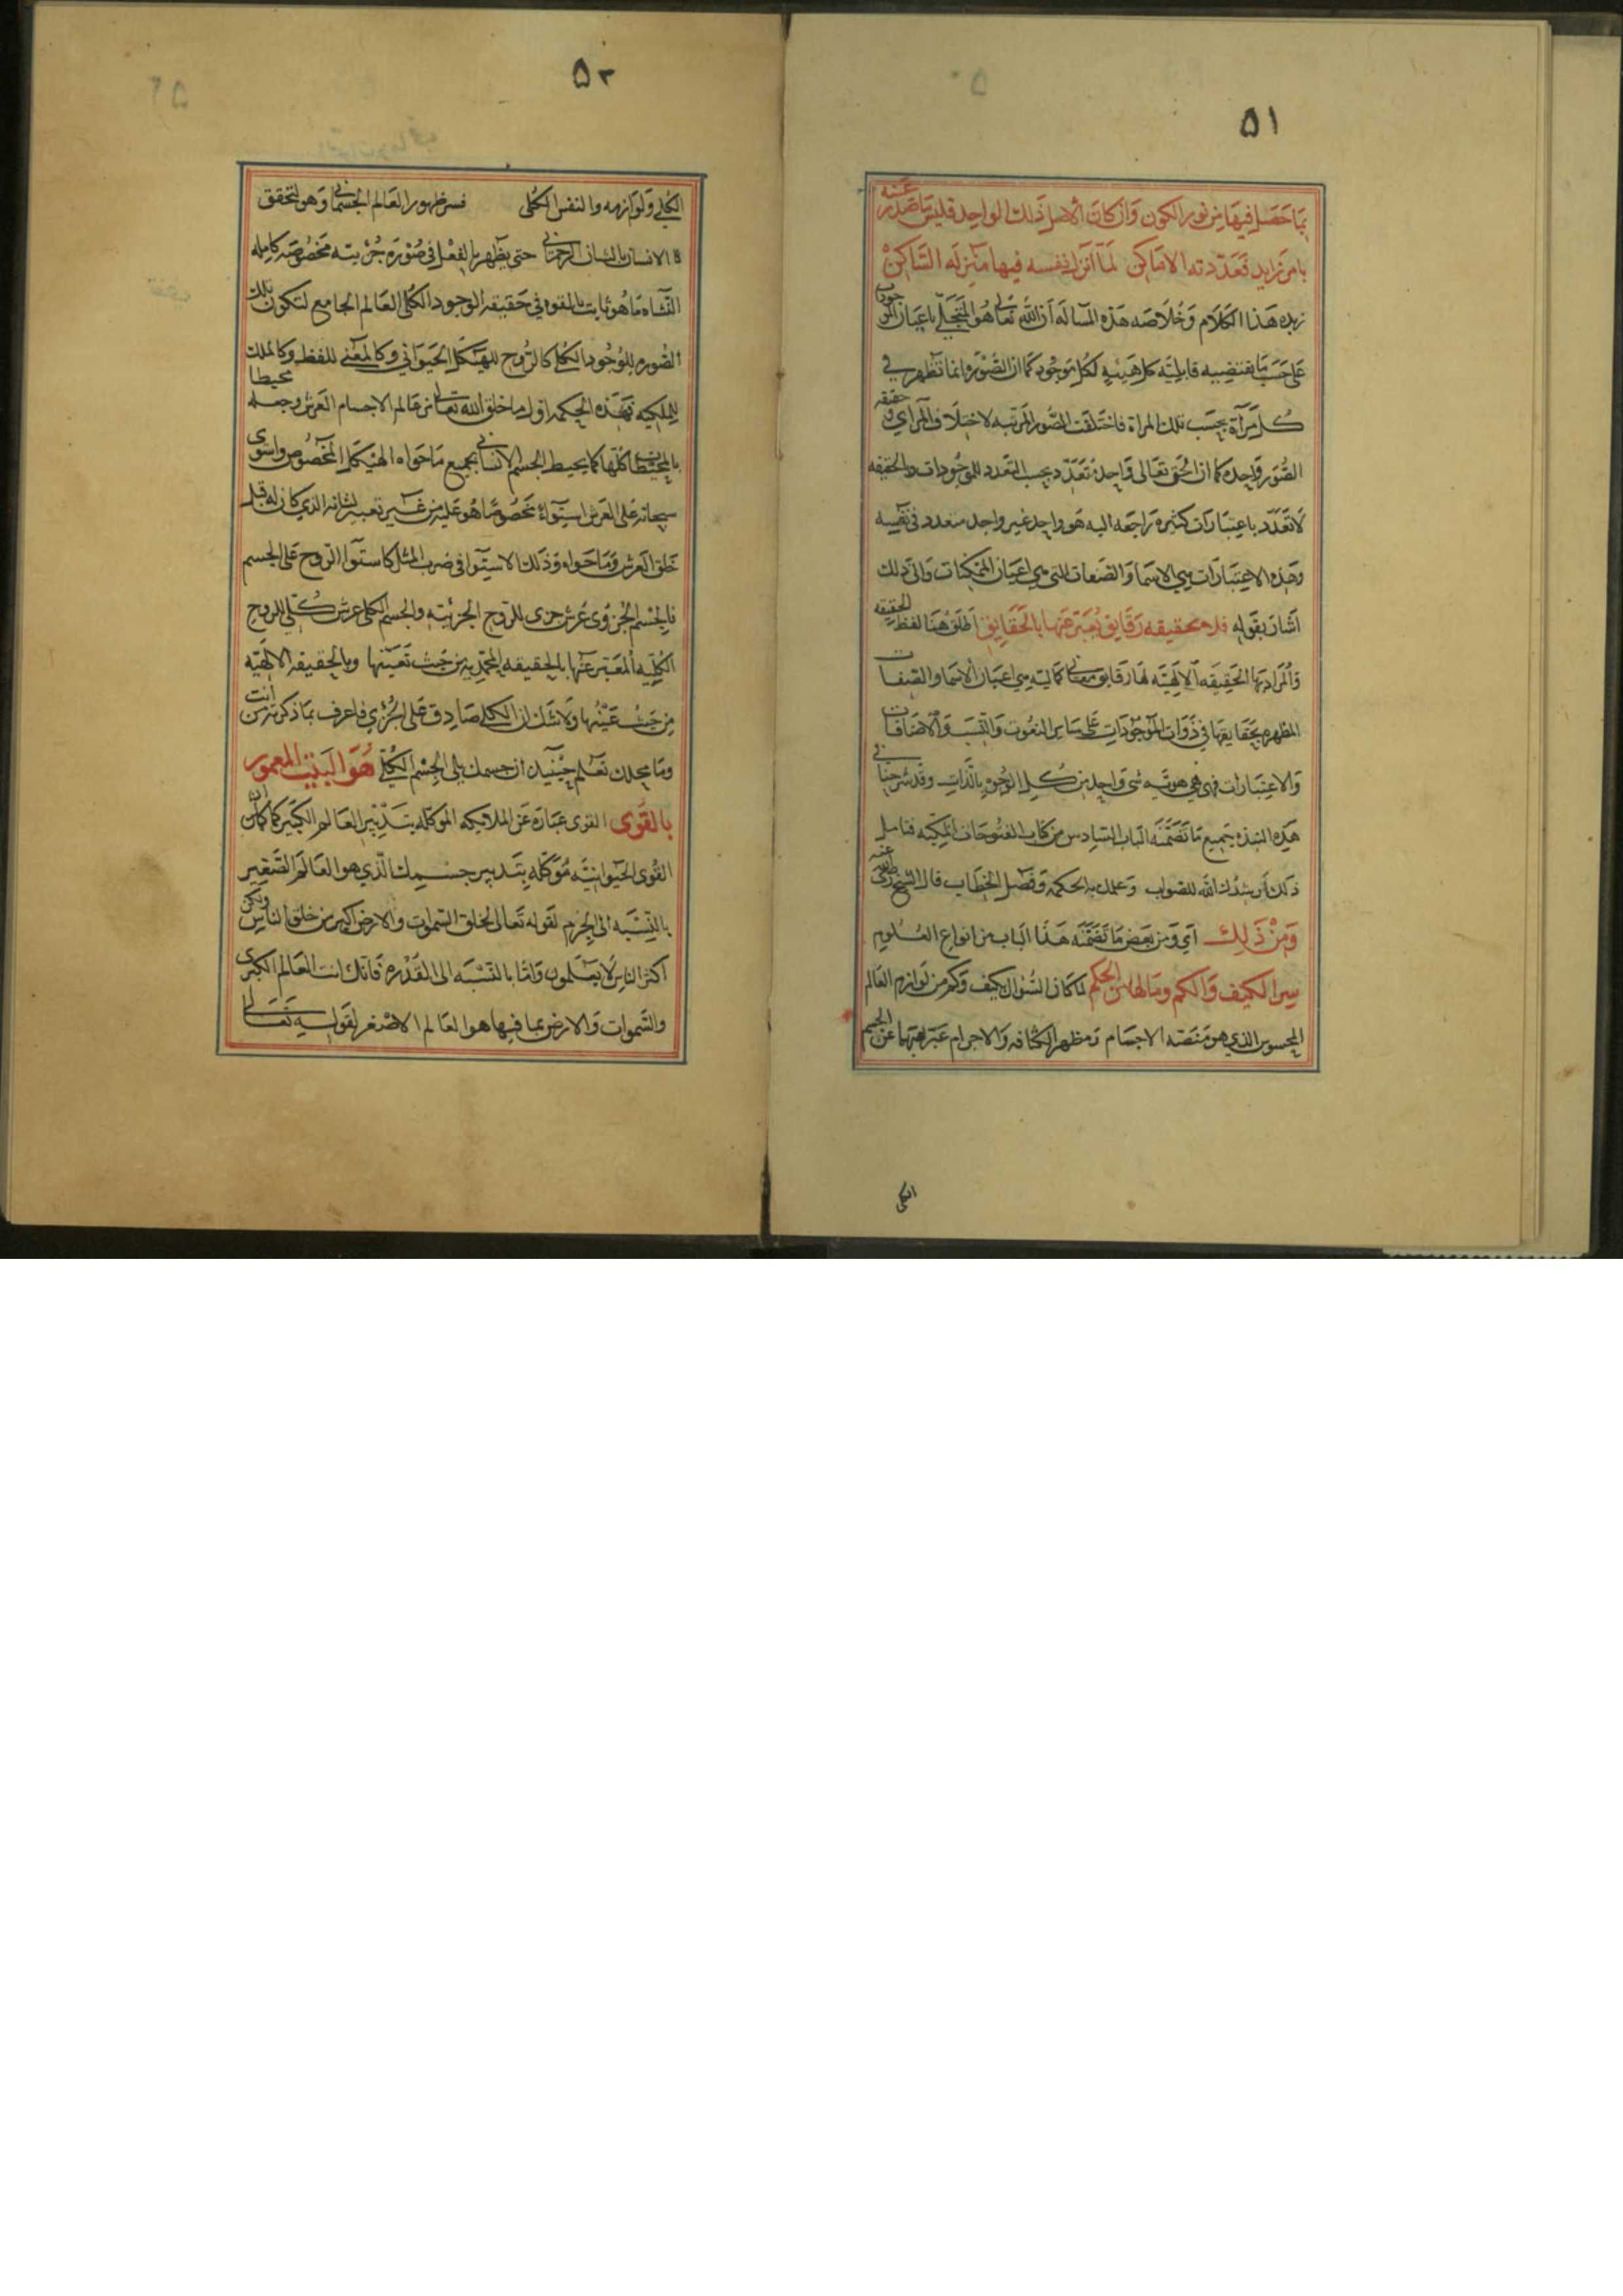 ٥١
بما حصل فيها من نور الكون وان كان الاصل ذلك الواحد فليس ما صدر عنه
بامر زايد فعددته الاماكن لما انزل نفسه فيها منزله الساكن
زبده هذا الكلام وخلاصه هذه المساله ان الله تعالى هو المتجلى باعيان الموجودات
على حسب ما يقتضيه قابليه كل هيئه لكل موجود كما ان الصوره انما تظهر في
كل مرآة بحسب تلك المراة فاختلفت الصور المرتبه لاختلاف المرآي وحقيقه
الصور واحده كما ان الحق تعالى واحد متعدد بحسب التعدد للموجودات والحقيقه
لا تعدد باعتبارات كثيره راجعه اليه هو واحد غير واحد متعدد في نفسه
وهذه الاعتبارات هي الاسما والصفات التي هي اعيان الممكنات والى ذلك
اشار بقوله فله بحقيقه رقايق يعبر عنها بالحقايق اطلق هنا لفظ الحقيقه
والمراد بها الحقيقه الالهيه لها رقايق معاني كماليه هي اعيان الاسما والصفات
المظهره بحقايقها في ذوات الموجودات على ساير النعوت والنسب والاضافات
والاعتبارات فهي هي هويه شى واحد من كل الوجوه بالذات وقد شرحنا في
هذه النبذه جميع ما تضمنه الباب السادس من كتاب الفتوحات المكيه فتامل
ذلك ارشدك الله للصواب وعلمك به الحكمه وفصل الخطاب قال الشيخ رضي الله عنه
ومن ذلك اي ومن بعض ما تضمنه هذا الباب من انواع العلوم
سر الكيف والكم وما لها من الحكم لما كان السوال بكيف وكم من لوازم العالم
المحسوس الذي هو منصه الاجسام ومظهر الكثافه والاجرام عبر بهما عن الجسم
الكلى
٥٢
الكلي ولوازمه والنفس الكلى فسر ظهور العالم الجسماني وهو لتحقق
الانسان بالشان الرحماني حتى يظهر بالفعل في صوره جزئيه مخصوصه كامله
النشاه ما هو ثابت بالقوه في حقيقه الوجود الكلى العالم الجامع لتكون تلك
الصوره للوجود الكلى كالروح للهيكل الحيواني وكالمعنى للفظ وكالملك
للملكيه فهذه الحكمه اول ما خلق الله تعالى من عالم الاجسام العرش وجعله محيطا
بالمحيطات كلها كما يحيط الجسم الانساني بجميع ما حواه الهيكل المخصوص واستوى
سبحانه على العرش استواء مخصوصا هو عليه من غير تعب لشانه الذي كان له قبل
خلق العرش وما حواه وذلك الاستوا في ضرب المثل كاستوا الروح على الجسم
فالجسم الجزوى عرش جزى للروح الجزئيه والجسم الكلى عرش كلي للروح
الكليه المعبر عنها بالحقيقه المحمديه من حيث تعينها وبالحقيقه الالهيه
من حيث عينها ولا شك ان الكلى صادق على الجزي فاعرف بما ذكرته من انت
وما محلك تعلم حينيد ان جسمك بلى الجسم الكلي هو البيت المعمور
بالقوى القوى عباره عن الملايكه الموكله بتدبير العالم الكبير كما ان
القوى الحيوانيه موكله بتدبير جسمك الذي هو العالم الصغير
بالنسبه الى الجرم لقوله تعالى لخلق السموات والارض اكبر من خلق الناس ولكن
اكثر الناس لا يعلمون واما بالنسبه الى القدره فانك انت العالم الكبرى
والسموات والارض بما فيها هو العالم الاصغر لقوله تعالى